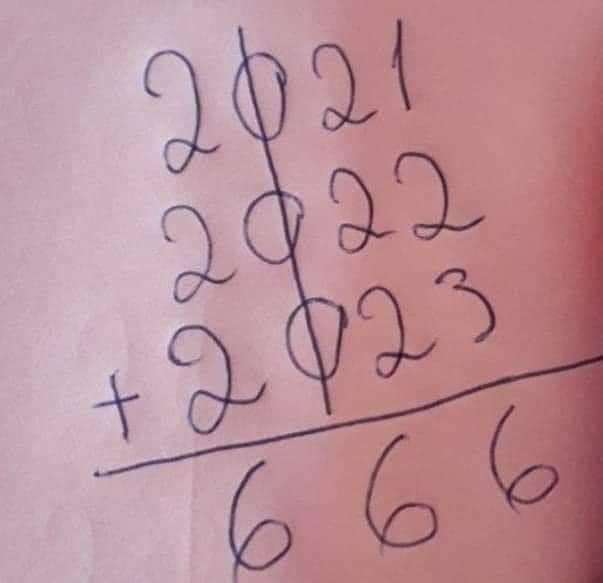 2021
2022
+ 2023
666